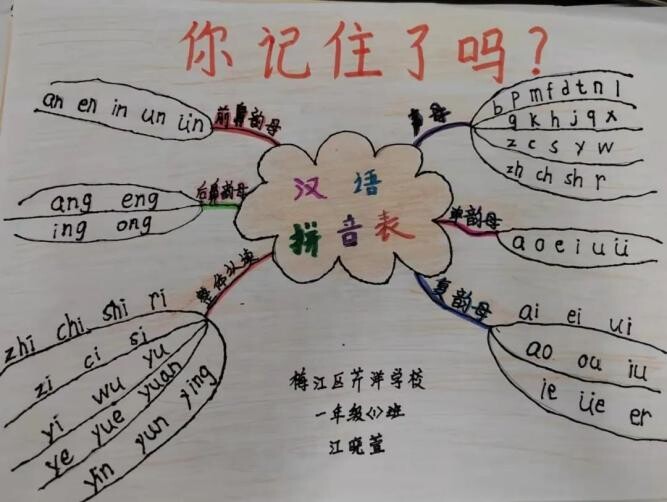 你记住了吗？
汉语
拼音表
前鼻韵母
an en in un ün
后鼻韵母
ang eng
ing ong
整体认读
zhi chi shi ri
zi ci si
yi wu yu
ye yue yuan
yin yun ying
声母
b p m f d t n l
g k h j q x
z c s y w
zh ch sh r
单韵母
a o e i u ü
复韵母
ai ei ui
ao ou iu
ie üe er
梅江区芹洋学校
一年级〈1〉班
江晓萱